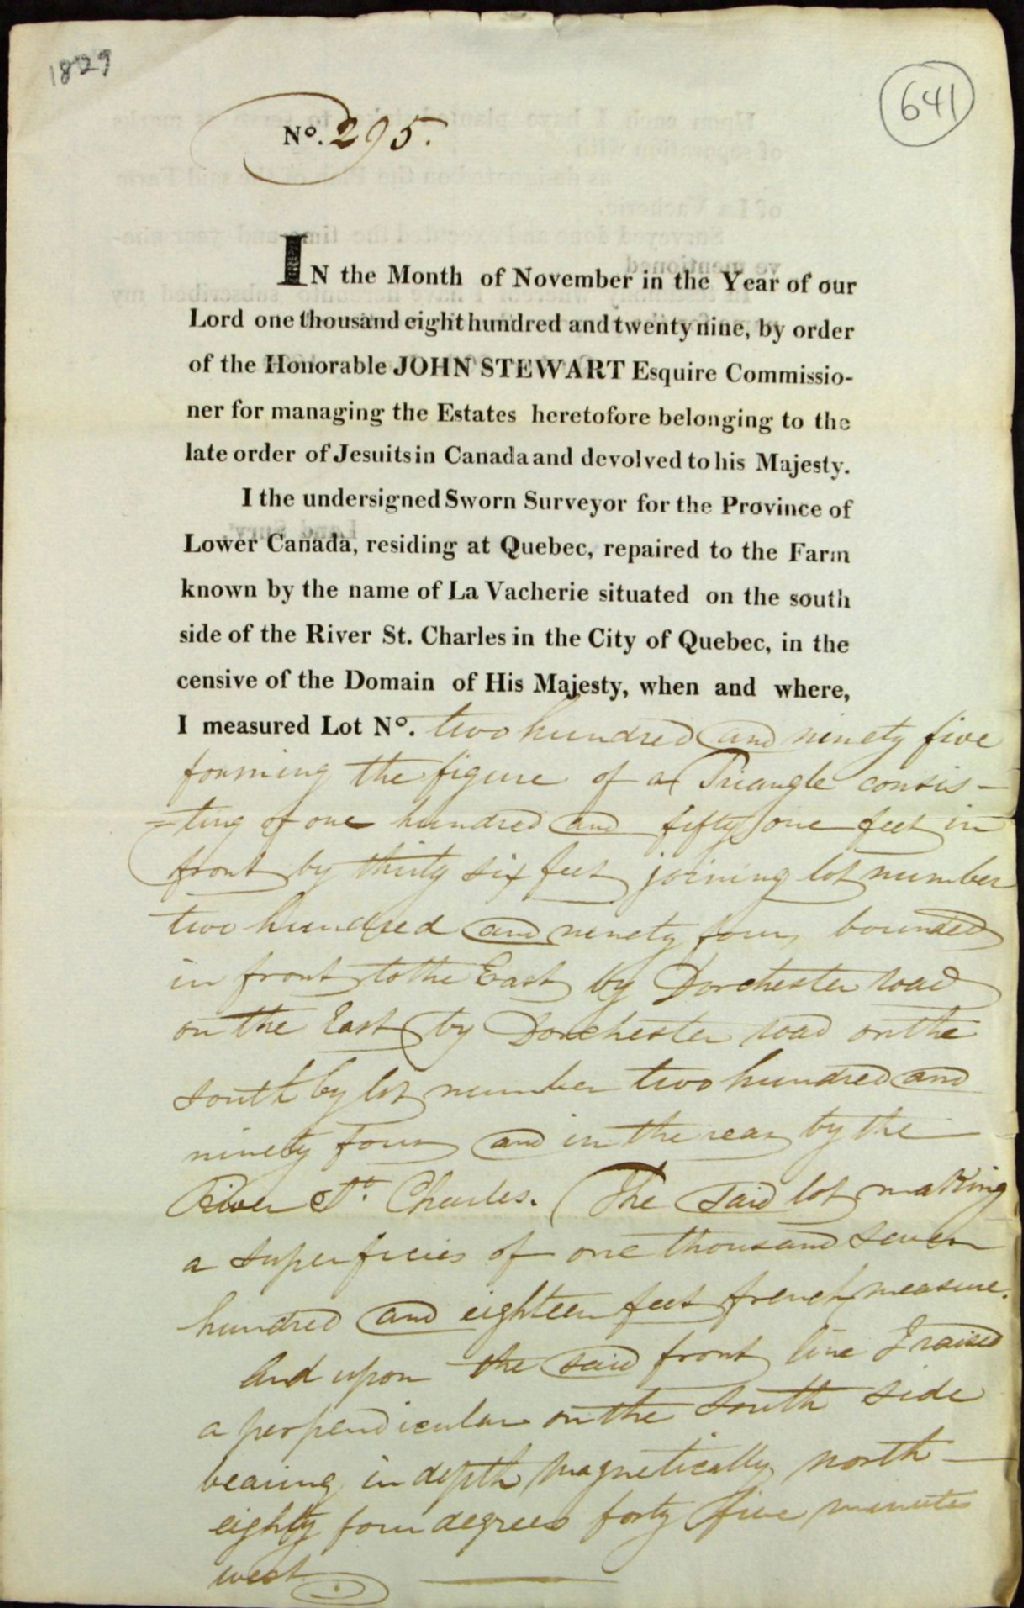 1829
641
No. 295.
IN the Month of November in the Year of our
Lord one thousand eight hundred and twenty nine, by order
of the Honorable JOHN STEWART Esquire Commissio-
ner for managing the Estates heretofore belonging to the
late order of Jesuits in Canada and devolved to his Majesty.
I the undersigned Sworn Surveyor for the Province of
Lower Canada, residing at Quebec, repaired to the Farm
known by the name of La Vacherie situated on the south
side of the River St. Charles in the City of Quebec, in the
censive of the Domain of His Majesty, when and where,
I measured Lot No. two hundred and ninety five
forming the figure of a Triangle consis-
-ting of one hundred and fifty one feet in
front by thirty six feet joining lot number
two hundred and ninety four, bounded
in front to the East by Dorchester road
on the East by Dorchester road on the
south by lot number two hundred and
ninety four and in the rear by the
River St. Charles. The said lot making
a superficies of one thousand seven
hundred and eighteen feet french measure.
And upon the said front line I raised
a perpendicular on the south side
bearing in depth magnetically north
eighty four degrees forty five minutes
west.